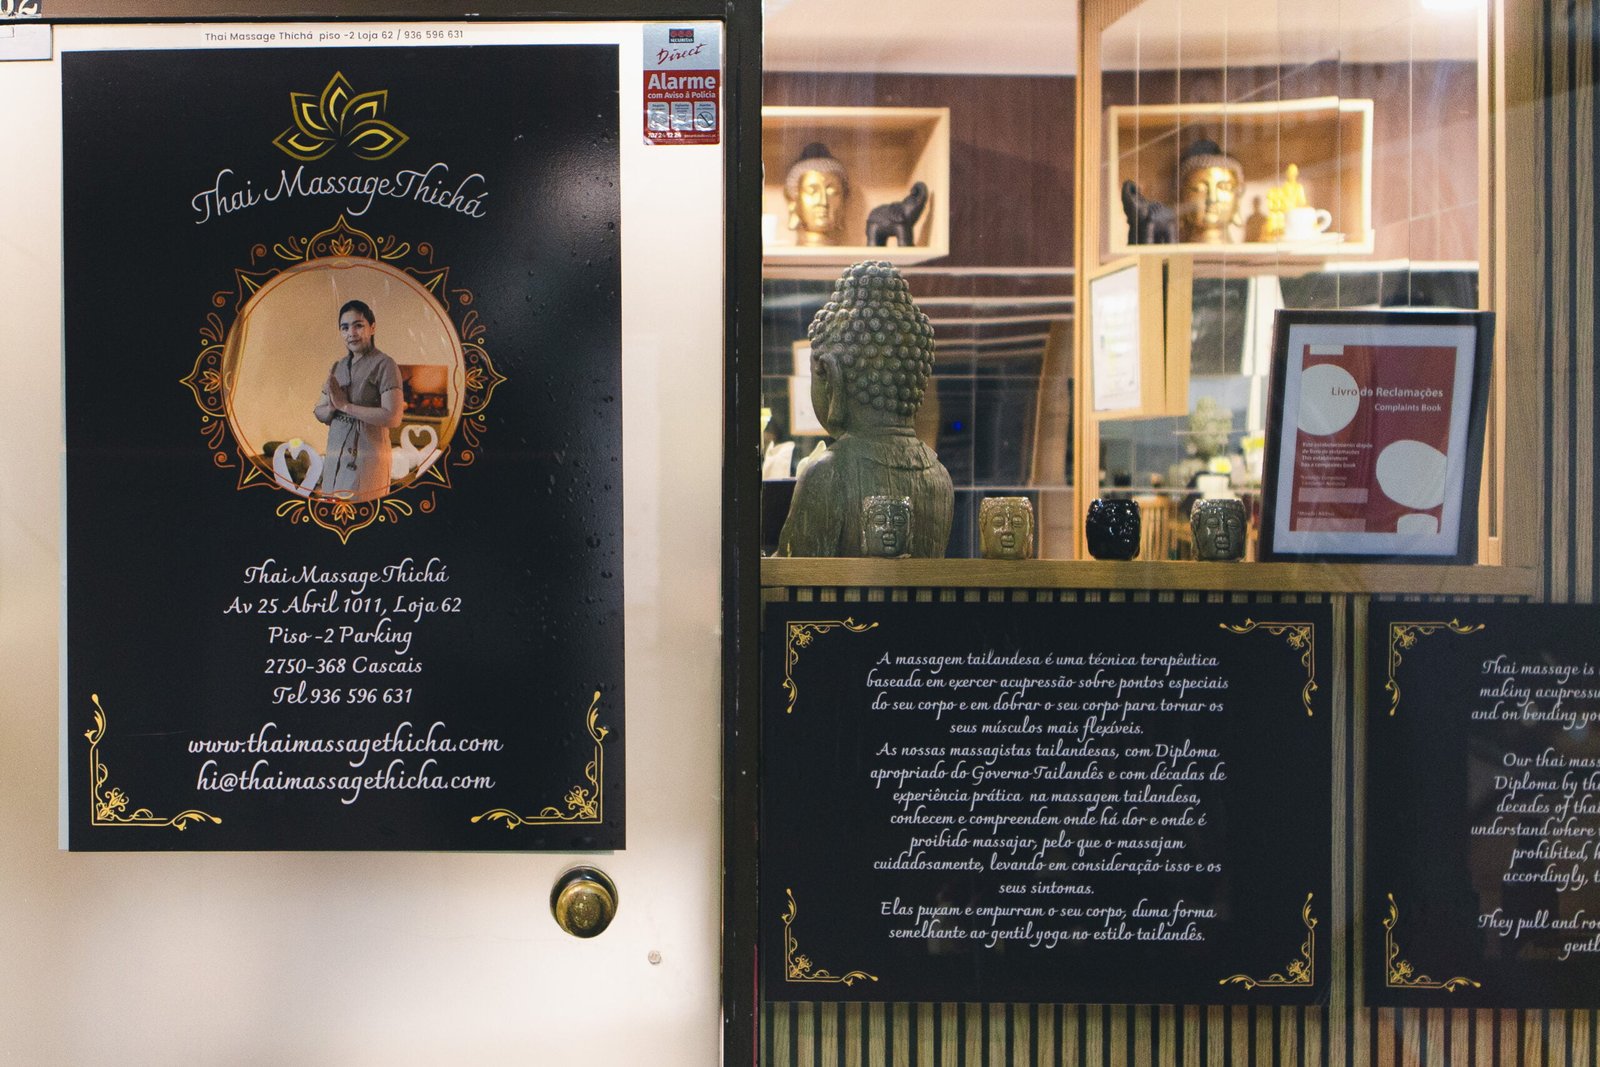 Thai Massage Thichá piso -2 Loja 62 / 936 596 631
Thai Massage Thichá
Thai Massage Thichá
Av 25 Abril 1011, Loja 62
Piso -2 Parking
2750-368 Cascais
Tel 936 596 631
www.thaimassagethicha.com
hi@thaimassagethicha.com
SECURITAS
Direct
Alarme
com Aviso à Polícia
Livro de Reclamações
Complaints Book
Este estabelecimento dispõe
de livro de reclamações
This establishment
has a complaints book
A massagem tailandesa é uma técnica terapêutica
baseada em exercer acupressão sobre pontos especiais
do seu corpo e em dobrar o seu corpo para tornar os
seus músculos mais flexíveis.
As nossas massagistas tailandesas, com Diploma
apropriado do Governo Tailandês e com décadas de
experiência prática na massagem tailandesa,
conhecem e compreendem onde há dor e onde é
proibido massajar, pelo que o massajam
cuidadosamente, levando em consideração isso e os
seus sintomas.
Elas puxam e empurram o seu corpo, duma forma
semelhante ao gentil yoga no estilo tailandês.
Thai massage is
making acupressu
and on bending yo
Our thai mass
Diploma by the
decades of thai
understand where
prohibited, h
accordingly, t
They pull and ro
gentl